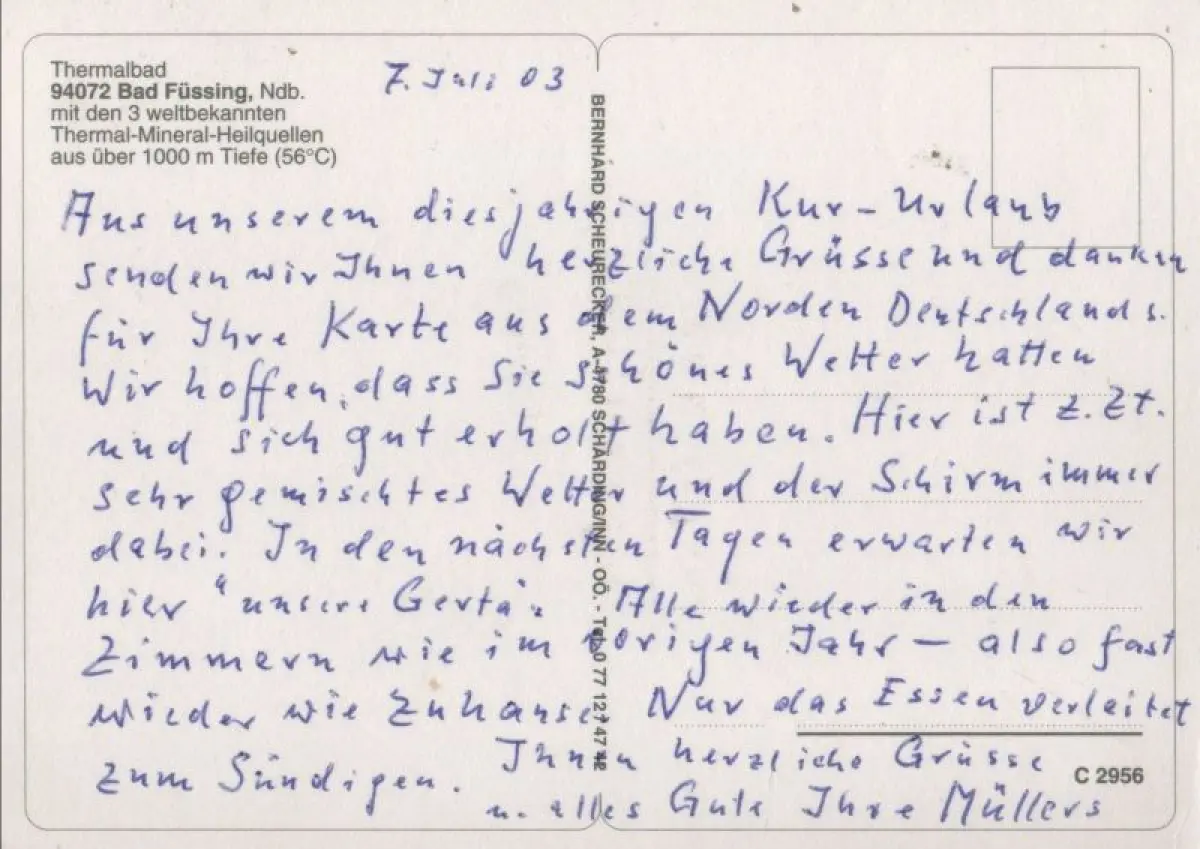 Thermalbad
94072 Bad Füssing, Ndb.
mit den 3 weltbekannten
Thermal-Mineral-Heilquellen
aus über 1000 m Tiefe (56°C)
7. Juli 03
BERNHARD SCHEURECKER, A-4780 SCHÄRDING/INN - OÖ. - Tel. 0 77 12 / 47 42
Aus unserem diesjährigen Kur-Urlaub
senden wir Ihnen herzliche Grüsse und danken
für Ihre Karte aus dem Norden Deutschlands.
Wir hoffen, dass Sie schönes Wetter hatten
und sich gut erholt haben. Hier ist z.Zt.
sehr gemischtes Wetter und der Schirm immer
dabei. In den nächsten Tagen erwarten wir
hier "unsere Gerta". Alle wieder in den
Zimmern wie im vorigen Jahr - also fast
wieder wie Zuhause. Nur das Essen verleitet
zum Sündigen.
Ihnen herzliche Grüsse
u. alles Gute Ihre Müllers
C 2956